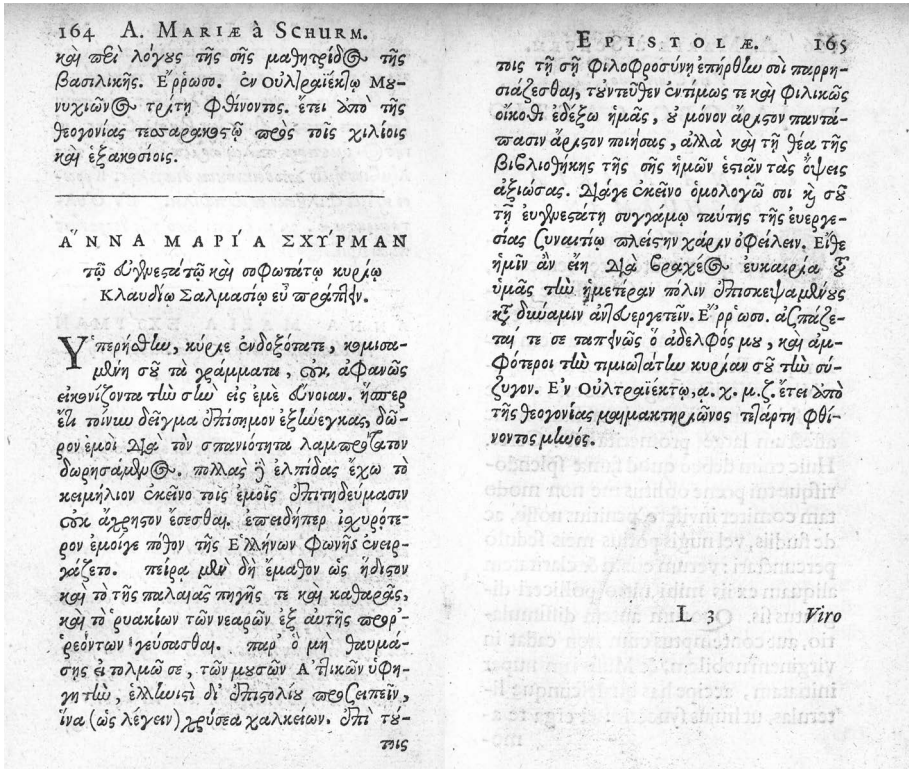 164 A. MARIÆ à SCHURM.
καὶ περὶ λόγους τῆς σῆς μαθητρίδος τῆς
βασιλικῆς. Ἔρρωσο. ἐν Οὐλτραϊέκτῳ Μου-
νυχιῶνος τρίτῃ φθίνοντος. ἔτει ἀπὸ τῆς
θεογονίας τεσσαρακοστῷ πρὸς τοῖς χιλίοις
καὶ ἑξακοσίοις.
ἌΝΝΑ ΜΑΡΊΑ ΣΧΎΡΜΑΝ
τῷ εὐγενεστάτῳ καὶ σοφωτάτῳ κυρίῳ
Κλαυδίῳ Σαλμασίῳ εὖ πράττειν.
Ὑπερήσθην, κύριε ἐνδοξότατε, κομισα-
μένη σοῦ τὰ γράμματα, οὐκ ἀφανῶς
εἰκονίζοντα τὴν σὴν εἰς ἐμὲ εὔνοιαν. ἥσπερ
ἔτι τοίνυν δεῖγμα ἐπίσημον ἐξήνεγκας, δῶ-
ρον ἐμοὶ διὰ τὸν σπανιότητα λαμπρότατον
δωρησάμενος. πολλὰς δὲ ἐλπίδας ἔχω τὸ
κειμήλιον ἐκεῖνο τοῖς ἐμοῖς ἐπιτηδεύμασιν
οὐκ ἄχρηστον ἔσεσθαι. ἐπειδήπερ ἰσχυρότε-
ρον ἔμοιγε πόθον τῆς Ἑλλήνων φωνῆς ἐνειρ-
γάζετο. πείρᾳ μὲν δὴ ἔμαθον ὡς ἥδιστον
καὶ τὸ τῆς παλαιᾶς πηγῆς τε καὶ καθαρᾶς,
καὶ τὸ ῥυακίων τῶν νεαρῶν ἐξ αὐτῆς πορρ-
ρεόντων γεύσασθαι. παρ' ὃ μὴ θαυμά-
σῃς εἰ τολμῶ σε, τῶν μουσῶν Ἀττικῶν ὑφη-
γητὴν, ἑλληνιστὶ δι' ἐπιστολίου προσειπεῖν,
ἵνα (ὡς λέγειν) χρύσεα χαλκείων. ἐπὶ τού-
τοις
EPISTOLÆ. 165
τοις τῇ σῇ φιλοφροσύνῃ ἐπήρθην σοὶ παρρη-
σιάζεσθαι, τοὐντεῦθεν ἐντίμως τε καὶ φιλικῶς
οἴκοθι ἐδέξω ἡμᾶς, οὐ μόνον ἄριστον παντά-
πασιν ἄριστον ποιήσας, ἀλλὰ καὶ τῇ θέᾳ τῆς
βιβλιοθήκης τῆς σῆς ἡμῶν ἑστιᾷν τὰς ὄψεις
ἀξιώσας. διάγε ἐκεῖνο ὁμολογῶ σοι καὶ σοῦ
τῇ εὐγενεστάτῃ συγγάμῳ ταύτης τῆς εὐεργε-
σίας ξυναιτίῳ πλείστην χάριν ὀφείλειν. Εἴθε
ἡμῖν ἂν εἴη διὰ βραχέος εὐκαιρία τοῦ
ὑμᾶς τὴν ἡμετέραν πόλιν ἐπισκεψαμένους
κατὰ δύναμιν ἀντευεργετεῖν. Ἔρρωσο. ἀσπάζε-
ταί τε σε ταπεινῶς ὁ ἀδελφός μου, καὶ ἀμ-
φότεροι τὴν τιμιωτάτην κυρίαν σοῦ τὴν σύ-
ζυγον. Ἐν Οὐλτραϊέκτῳ, α. χ. μ. ζ. ἔτει ἀπὸ
τῆς θεογονίας μαιμακτηριῶνος τετάρτῃ φθί-
νοντος μηνός.
L 3 Viro